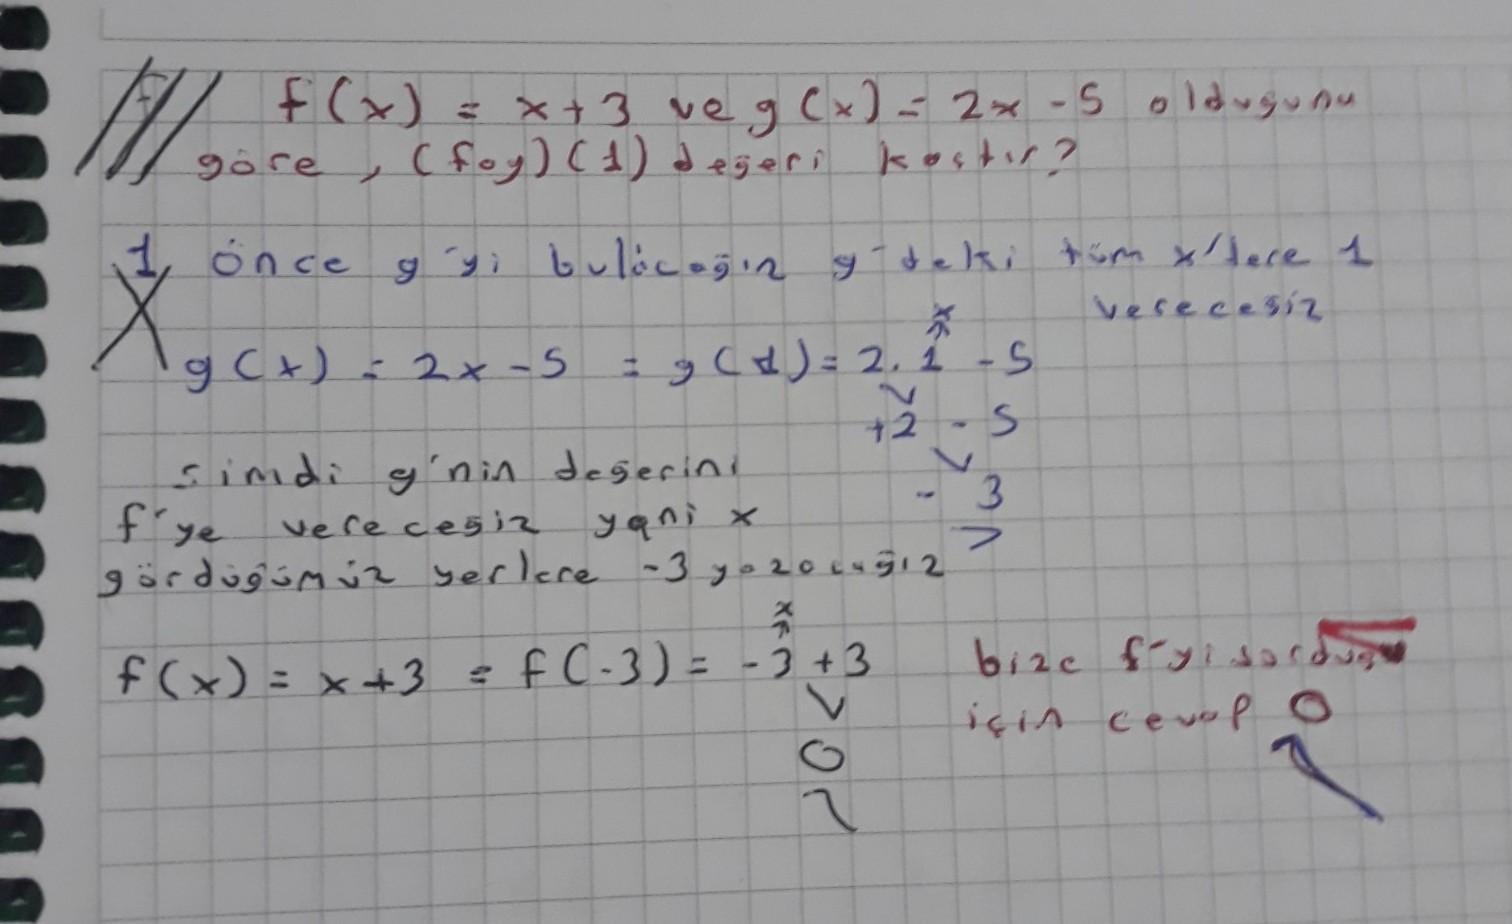 f(x) = x+3 ve g(x) = 2x -5 olduğunu
göre, (fog)(1) değeri kaçtır?
1 önce g'yi bulacağız g'deki tüm x'lere 1
vereceğiz
x
g(x) = 2x -5 = g(1) = 2.1 -5
+2 - 5
şimdi g'nin değerini
- 3
f'ye vereceğiz yani x
gördüğümüz yerlere -3 yazacağız
x
f(x) = x+3 = f(-3) = -3 +3
bize f'yi sorduğu
için cevap 0
0